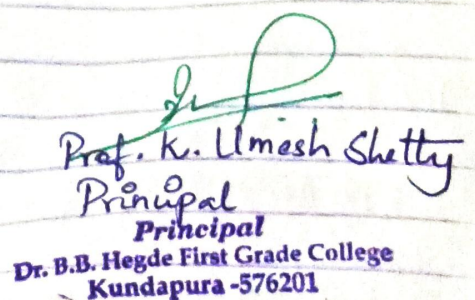 Prof. K. Umesh Shetty
Principal
Principal
Dr. B.B. Hegde First Grade College
Kundapura -576201